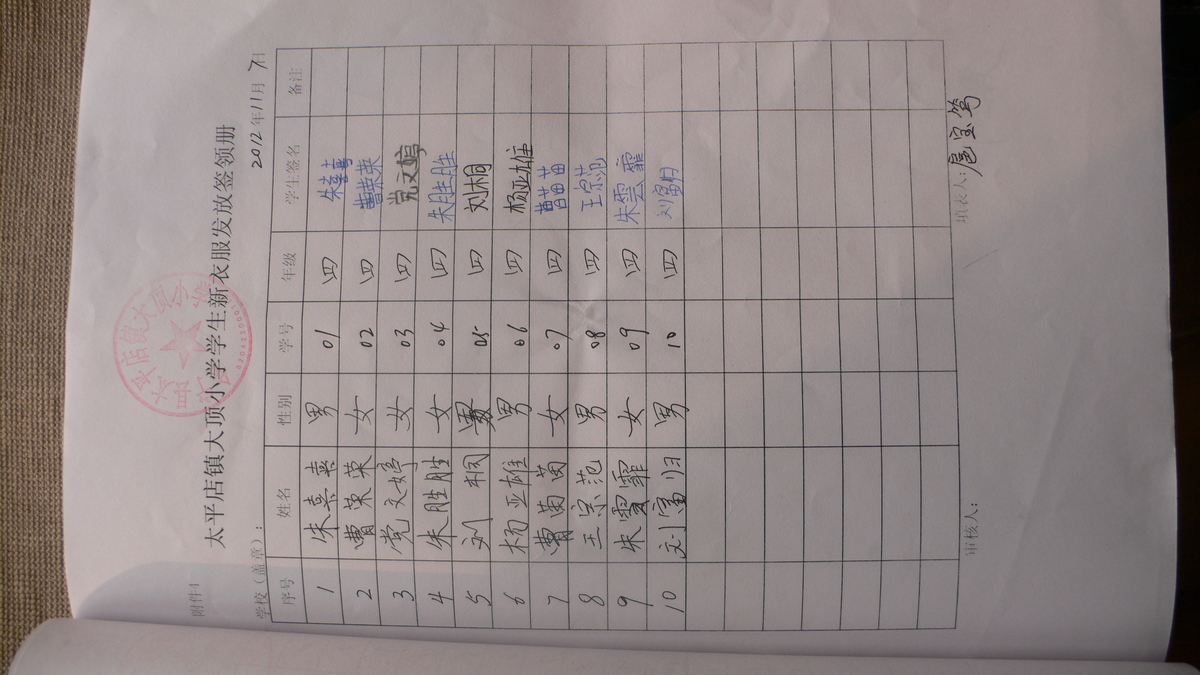 附件4
太平店镇大顶小学学生新衣服发放签领册
学校（盖章）： 2012年11月7日
序号 姓名 性别 学号 年级 学生签名 备注
1 朱喜喜 男 01 四 朱喜喜
2 曹荣荣 女 02 四 曹荣荣
3 党文婷 女 03 四 党文婷
4 朱胜胜 女 04 四 朱胜胜
5 刘桐 05 四 刘桐
6 杨亚雄 男 06 四 杨亚雄
7 曹苗苗 女 07 四 曹苗苗
8 王宗范 男 08 四 王宗范
9 朱雲霏 女 09 四 朱雲霏
10 刘富归 男 10 四 刘富归
审核人： 填表人：扈宝笃
太平店镇大顶小学